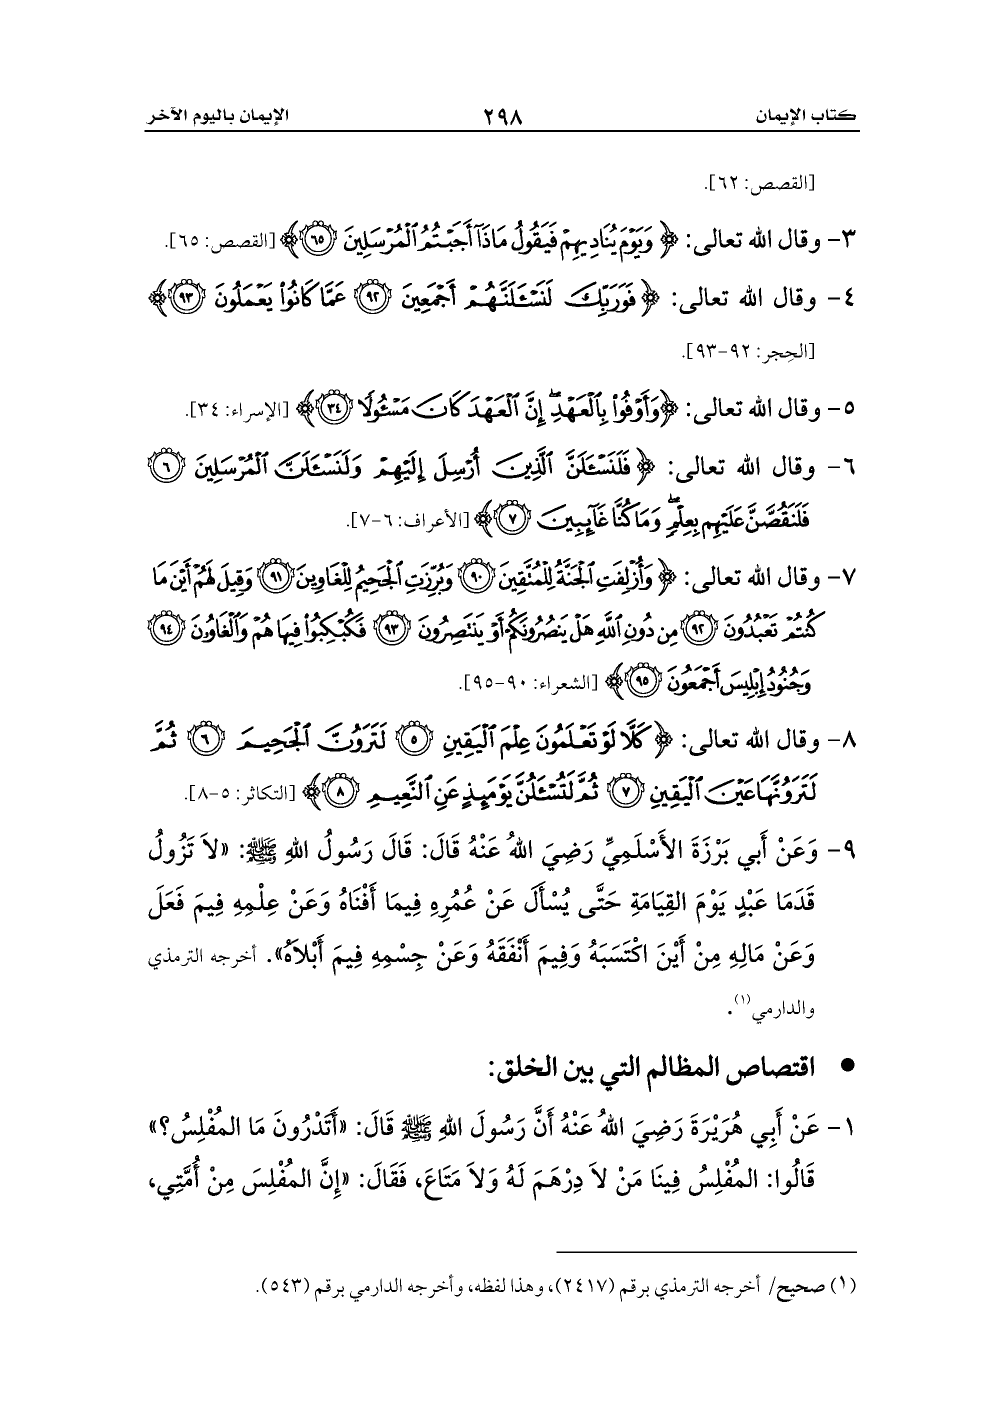 كتاب الإيمان ٢٩٨ الإيمان باليوم الآخر
[القصص: ٦٢].
٣- وقال الله تعالى: ﴿وَيَوْمَ يُنَادِيهِمْ فَيَقُولُ مَاذَآ أَجَبْتُمُ ٱلْمُرْسَلِينَ ٦٥﴾ [القصص: ٦٥].
٤- وقال الله تعالى: ﴿فَوَرَبِّكَ لَنَسْـَٔلَنَّهُمْ أَجْمَعِينَ ٩٢ عَمَّا كَانُوا۟ يَعْمَلُونَ ٩٣﴾
[الحِجر: ٩٢-٩٣].
٥- وقال الله تعالى: ﴿وَأَوْفُوا۟ بِٱلْعَهْدِ ۖ إِنَّ ٱلْعَهْدَ كَانَ مَسْـُٔولًا ٣٤﴾ [الإسراء: ٣٤].
٦- وقال الله تعالى: ﴿فَلَنَسْـَٔلَنَّ ٱلَّذِينَ أُرْسِلَ إِلَيْهِمْ وَلَنَسْـَٔلَنَّ ٱلْمُرْسَلِينَ ٦
فَلَنَقُصَّنَّ عَلَيْهِم بِعِلْمٍ ۖ وَمَا كُنَّا غَآئِبِينَ ٧﴾ [الأعراف: ٦-٧].
٧- وقال الله تعالى: ﴿وَأُزْلِفَتِ ٱلْجَنَّةُ لِلْمُتَّقِينَ ٩٠ وَبُرِّزَتِ ٱلْجَحِيمُ لِلْغَاوِينَ ٩١ وَقِيلَ لَهُمْ أَيْنَ مَا
كُنتُمْ تَعْبُدُونَ ٩٢ مِن دُونِ ٱللَّهِ هَلْ يَنصُرُونَكُمْ أَوْ يَنتَصِرُونَ ٩٣ فَكُبْكِبُوا۟ فِيهَا هُمْ وَٱلْغَاوُۥنَ ٩٤
وَجُنُودُ إِبْلِيسَ أَجْمَعُونَ ٩٥﴾ [الشعراء: ٩٠-٩٥].
٨- وقال الله تعالى: ﴿كَلَّا لَوْ تَعْلَمُونَ عِلْمَ ٱلْيَقِينِ ٥ لَتَرَوُنَّ ٱلْجَحِيمَ ٦ ثُمَّ
لَتَرَوُنَّهَا عَيْنَ ٱلْيَقِينِ ٧ ثُمَّ لَتُسْـَٔلُنَّ يَوْمَئِذٍ عَنِ ٱلنَّعِيمِ ٨﴾ [التكاثر: ٥-٨].
٩- وَعَنْ أَبي بَرْزَةَ الأَسْلَمِيِّ رَضِيَ اللهُ عَنْهُ قَالَ: قَالَ رَسُولُ اللهِ ﷺ: «لاَ تَزُولُ
قَدَمَا عَبْدٍ يَوْمَ القِيَامَةِ حَتَّى يُسْأَلَ عَنْ عُمُرِهِ فِيمَا أَفْنَاهُ وَعَنْ عِلْمِهِ فِيمَ فَعَلَ
وَعَنْ مَالِهِ مِنْ أَيْنَ اكْتَسَبَهُ وَفِيمَ أَنْفَقَهُ وَعَنْ جِسْمِهِ فِيمَ أَبْلاَهُ». أخرجه الترمذي
والدارمي(١).
● اقتصاص المظالم التي بين الخلق:
١- عَنْ أَبِي هُرَيْرَةَ رَضِيَ اللهُ عَنْهُ أَنَّ رَسُولَ اللهِ ﷺ قَالَ: «أَتَدْرُونَ مَا المُفْلِسُ؟»
قَالُوا: المُفْلِسُ فِينَا مَنْ لاَ دِرْهَمَ لَهُ وَلاَ مَتَاعَ، فَقَالَ: «إِنَّ المُفْلِسَ مِنْ أُمَّتِي،
(١) صحيح/ أخرجه الترمذي برقم (٢٤١٧)، وهذا لفظه، وأخرجه الدارمي برقم (٥٤٣).